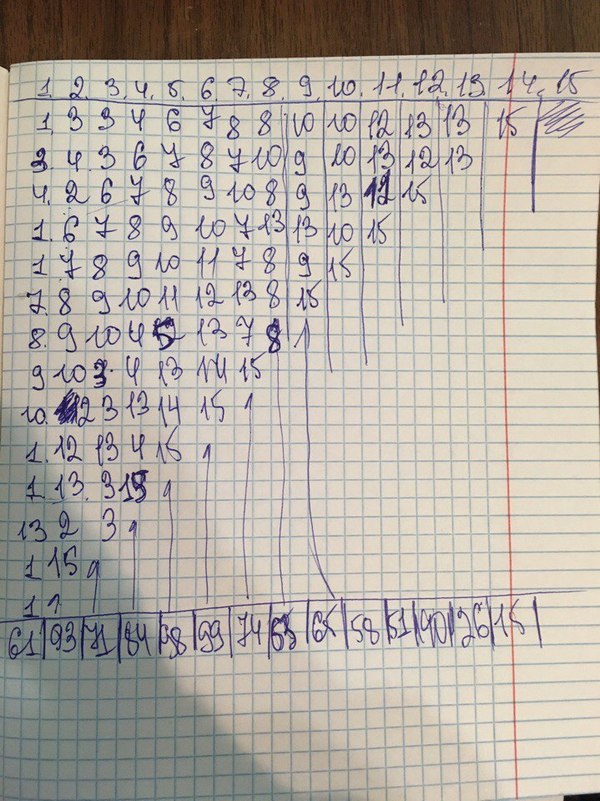 1. 2. 3. 4. 5. 6 7. 8. 9. 10. 11. 12. 13 14. 15
1. 3 3 4 6 7 8 8 10 10 12 13 13 15
3 4. 3 6 7 8 7 10 9 10 13 12 13
4. 2 6 7 8 9 10 8 9 13 12 15
1. 6 7 8 9 10 7 13 13 10 15
1 7 8 9 10 11 7 8 9 15
7. 8 9 10 11 12 13 8 15
8. 9 10 4 13 7 8 1
9 10 3 4 13 14 15
10. 2 3 13 14 15 1
1. 12 13 4 15 1
1. 13. 3 1
13 2 3 1
1 15 1
1 1
61 93 71 84 98 99 74 65 58 51 90 26 15